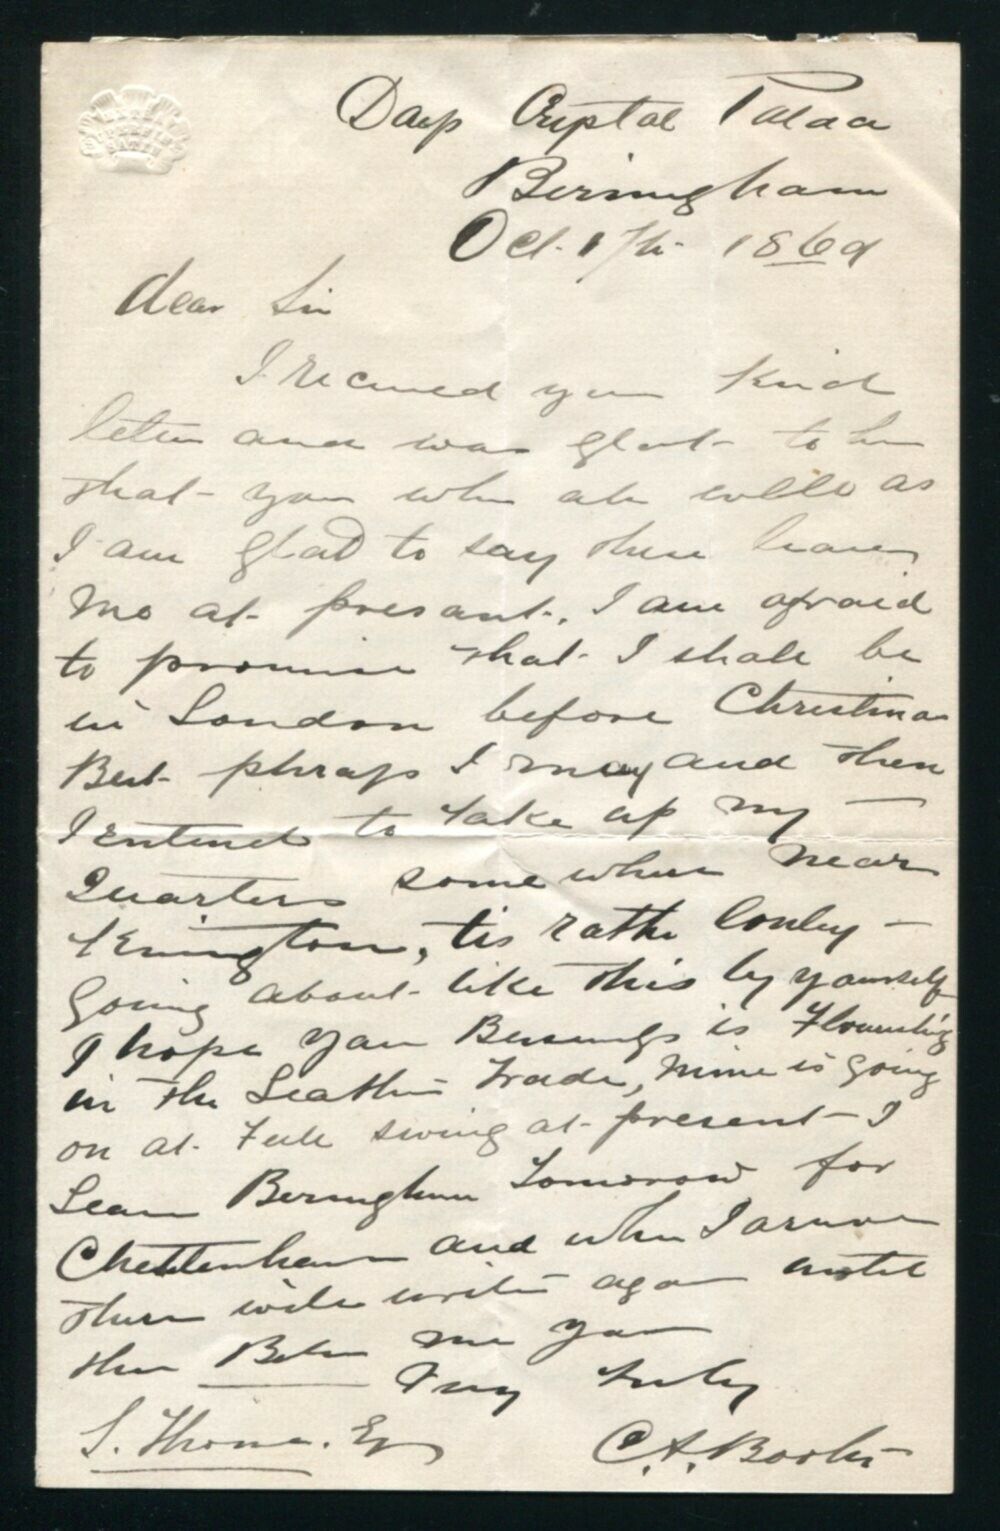 Days Crystal Palace
Birmingham
Oct. 17th 1869
dear Sir
I received your kind
letter and was glad to hear
that you where all well as
I am glad to say these leaves
me at presant, I am afraid
to promise that I shall be
in London before Christmas
But phraps I may and then
I entend to take up my
Quarters some where near
Kenington, tis rather lonley
Going about like this by yourself
I hope your Buisness is Flourishing
in the Leather Trade, Mine is going
on at Full swing at present I
Leave Birmingham Tomorrow for
Cheltenham and when I arrive
there will write again until
then me your
Very truly
S. Thomas. Esq
C.A. Booth